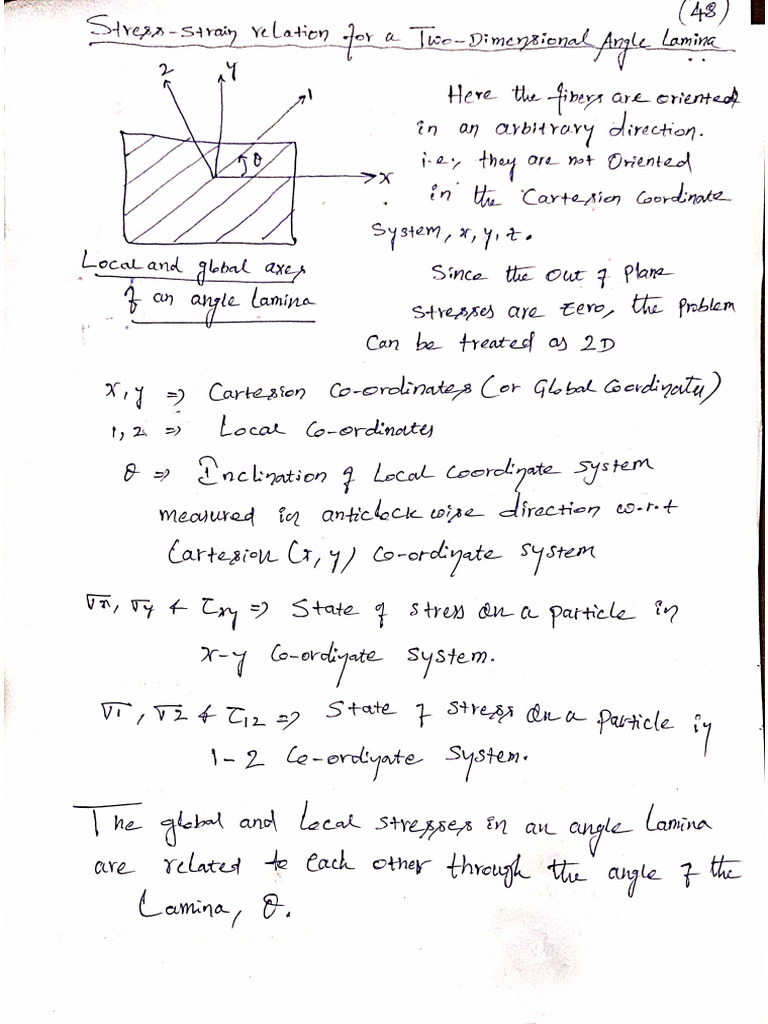 (48)
Stress-strain relation for a Two-Dimensional Angle Lamina
2
y
1
θ
x
Local and global axes
of an angle Lamina
Here the fibers are oriented
in an arbitrary direction.
i.e., they are not Oriented
in the Cartesion Coordinate
System, x, y, z.
Since the out of plane
stresses are zero, the problem
Can be treated as 2D
x, y => Cartesion Co-ordinates (or Global Coordinates)
1, 2 => Local Co-ordinates
θ => Inclination of Local Coordinate system
measured in anticlock wise direction w.r.t
Cartesion (x, y) Co-ordinate system
σx, σy & τxy => State of stress on a particle in
x-y Co-ordinate system.
σ1, σ2 & τ12 => State of stress on a particle in
1-2 Co-ordinate System.
The global and Local stresses in an angle Lamina
are related to each other through the angle of the
Lamina, θ.